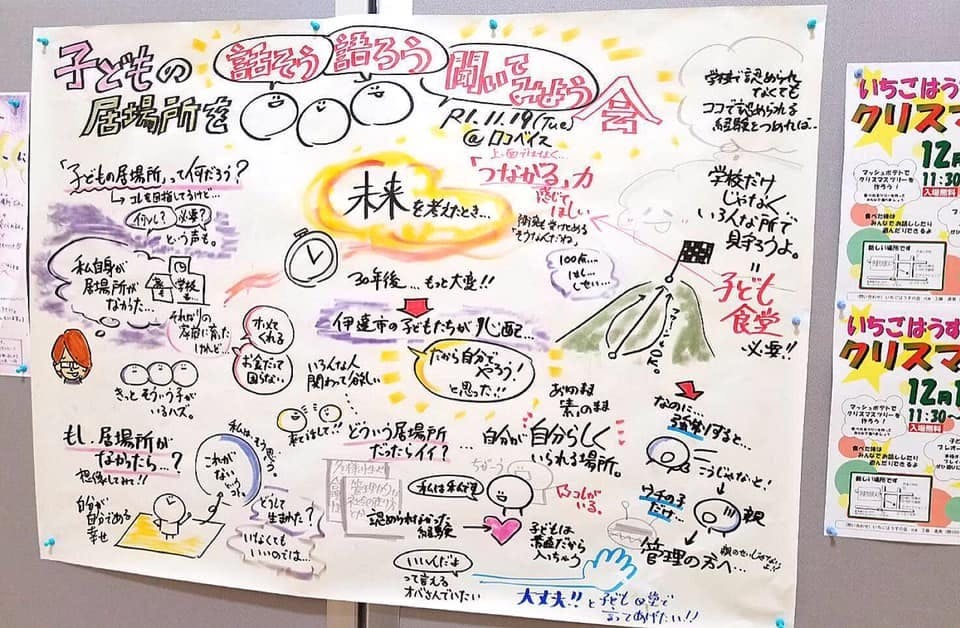 子どもの
居場所を
話そう
語ろう
聞いて
みよう
会
R1.11.19(Tue)
@ロコベイス
「子どもの居場所」って何だろう?
コレを目指してるけど…
必要?
という声も。
私自身が
居場所が
なかった…
学校
それなりの
家庭に育った
けれど…
きっとそういう子が
いるハズ。
ホメて
くれる
お金だって
困らない
未来を考えたとき…
30年後…もっと大変!!
伊達市の子どもたちが心配…
だから自分で
やろう!
と思った!!
上・面ではなく…
「つながる」力
感じて
ほしい
100点…
学校で認められ
なくても
ココで認められる
経験をつめれば…
学校だけ
じゃなく
いろんな所で
見守ろうよ。
=
子ども
食堂
必要!!
いろんな人
関わって欲しい
来てほして!!
どういう居場所
だったらイイ?
…自分が自分らしく
いられる場所。
ありのまま
素のまま
もし、居場所が
なかったら…?
想像してみて!!
私は、そう思う。
これが
ない
自分が
自分である
幸せ
どうして
生まれた?
いなくても
いいのでは…
認められなかった
経験
ちがう
コレが
いる。
子どもは
素直だから
入っちゃう
いいんだよ
って言える
オバさんでいたい
大丈夫!!と子ども食堂で
言ってあげたい!!
なのに…
強がりすると…
こうじゃなきゃ!
ウチの子
だけ…
親
管理の方へ…
いちごはうす
クリスマ
12月
11:30
入場無料
マッシュポテトで
クリスマスツリーを
作ろう!
食べた後は
みんなでお話ししたり
遊んだりできるよ
新しい場所です
いちごはうす
クリスマ
12月1
11:30~
入場無料
マッシュポテトで
クリスマスツリーを
作ろう!
食べた後は
みんなでお話ししたり
遊んだりできるよ
新しい場所です